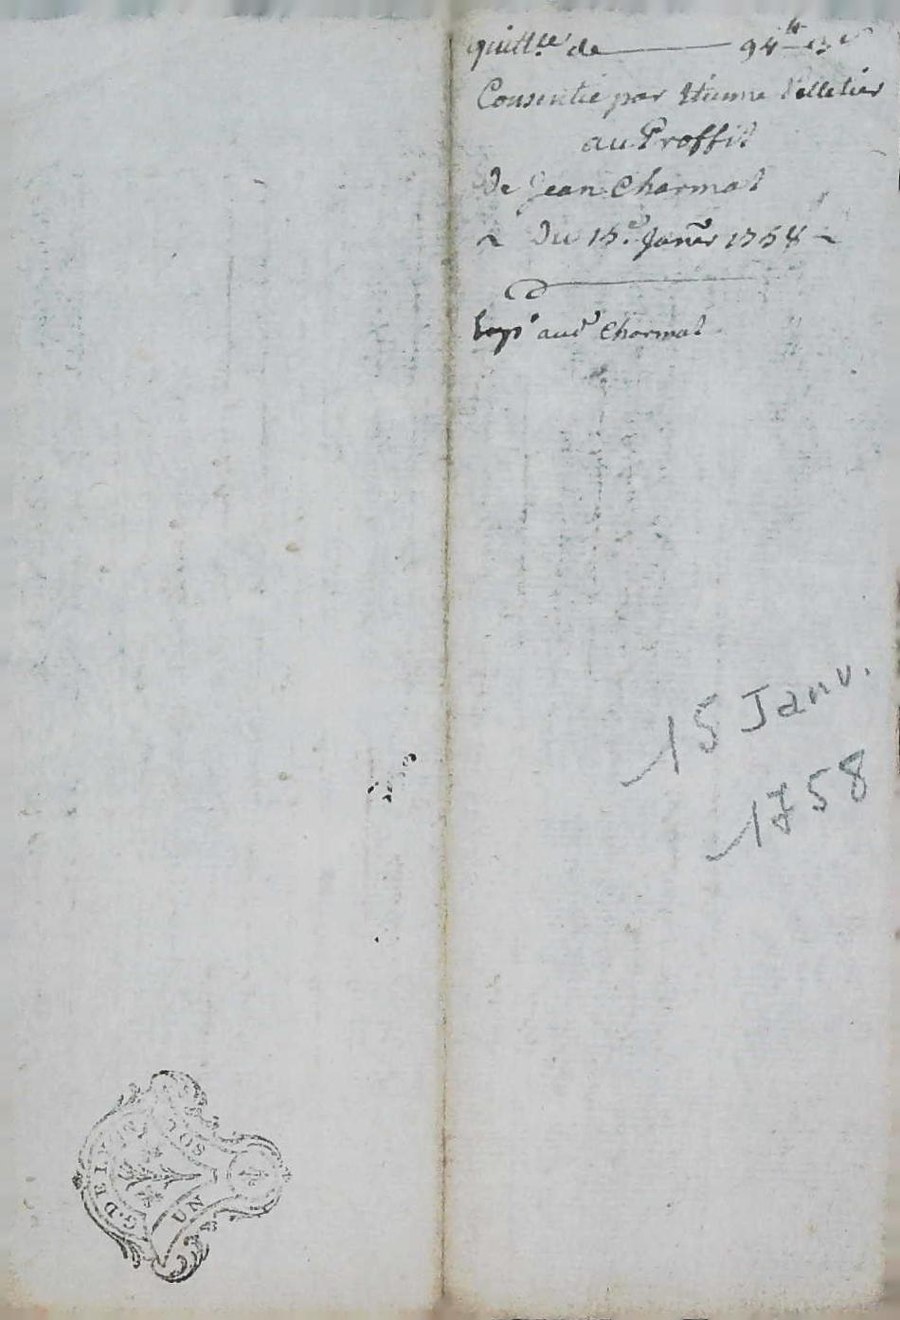 quitt.ce de 94 tt 3 s
Consentie par Etienne Pelletier
au Proffit
De Jean Charmat
~ Du 15.e Janer 1758 ~
aud. Charmat
15 Janv.
1758
G. DE
UN SOL